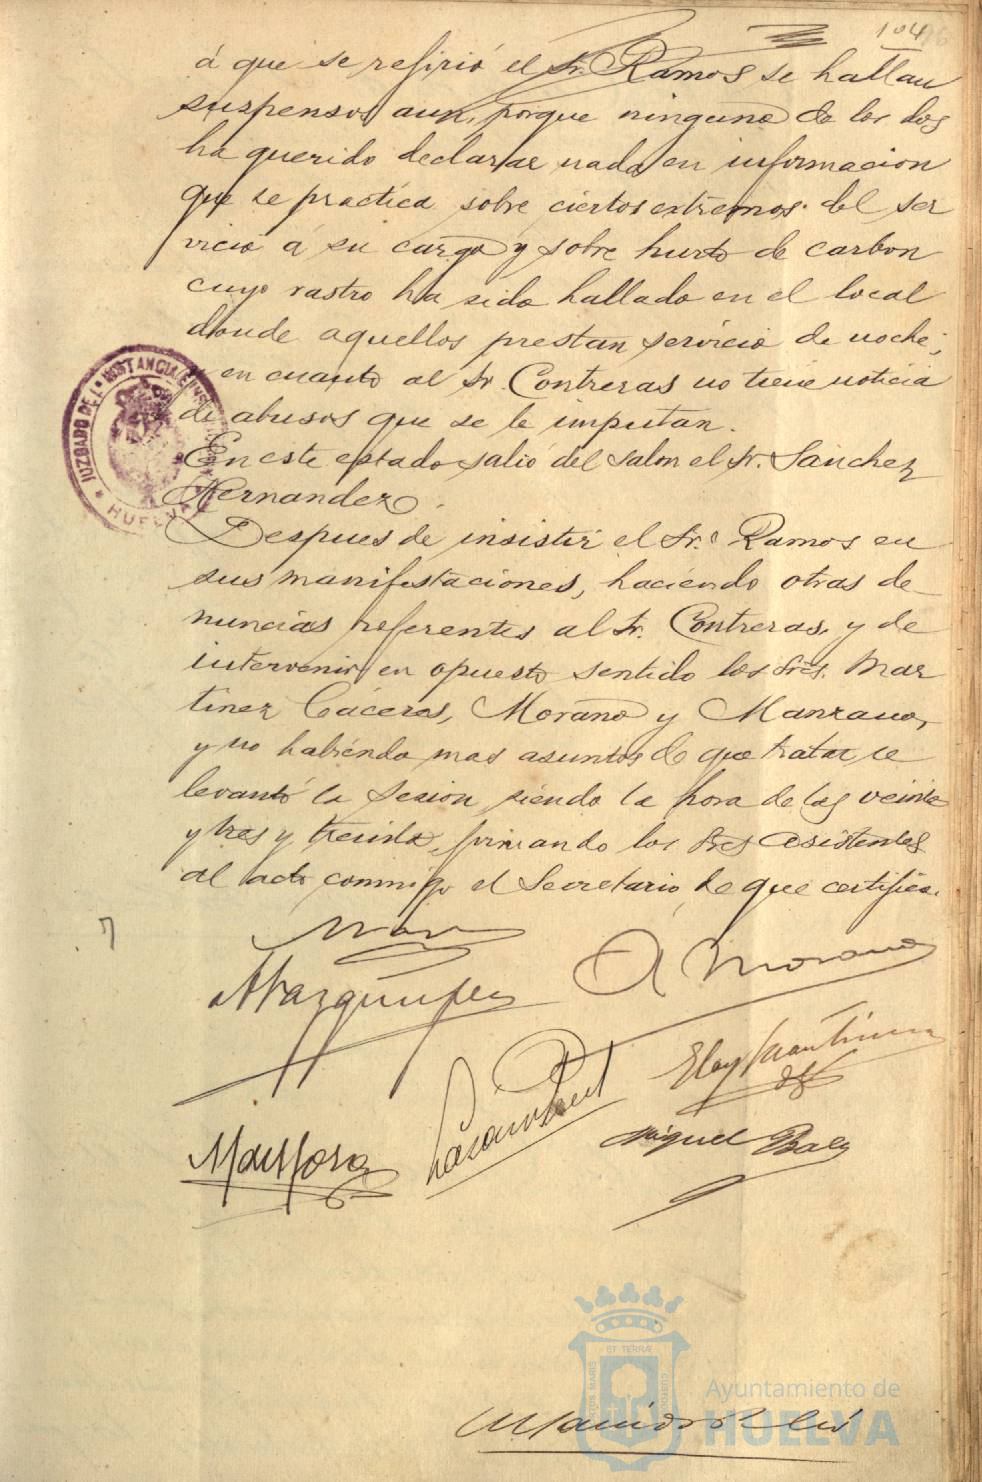 104
á que se refirió el Sr. Ramos se hallan
suspensos aun, porque ninguno de los dos
ha querido declarar nada en informacion
que se practica sobre ciertos extremos del ser
vicio á su cargo y sobre hurto de carbon
cuyo rastro ha sido hallado en el local
donde aquellos prestan servicio de noche;
y en cuanto al Sr. Contreras no tiene noticia
de abusos que se le imputan.
En este estado salió del salon el Sr. Sanchez
Hernandez.
Despues de insistir el Sr. Ramos en
sus manifestaciones, haciendo otras de-
nuncias referentes al Sr. Contreras, y de
intervenir en opuesto sentido los Sres. Mar
tinez Cáceres, Morano y Manzano,
y no habiendo mas asuntos de que tratar se
levantó la sesion siendo la hora de las veinte
y tres y treinta, firmando los Sres asistentes
al acto conmigo el Secretario, de que certifico.
A Morano
Eloy Martinez
Miguel Baez
JUZGADO DE 1ª INSTANCIA
HUELVA
ET TERRÆ
PORTUS MARIS
CUSTODIA
Ayuntamiento de
HUELVA